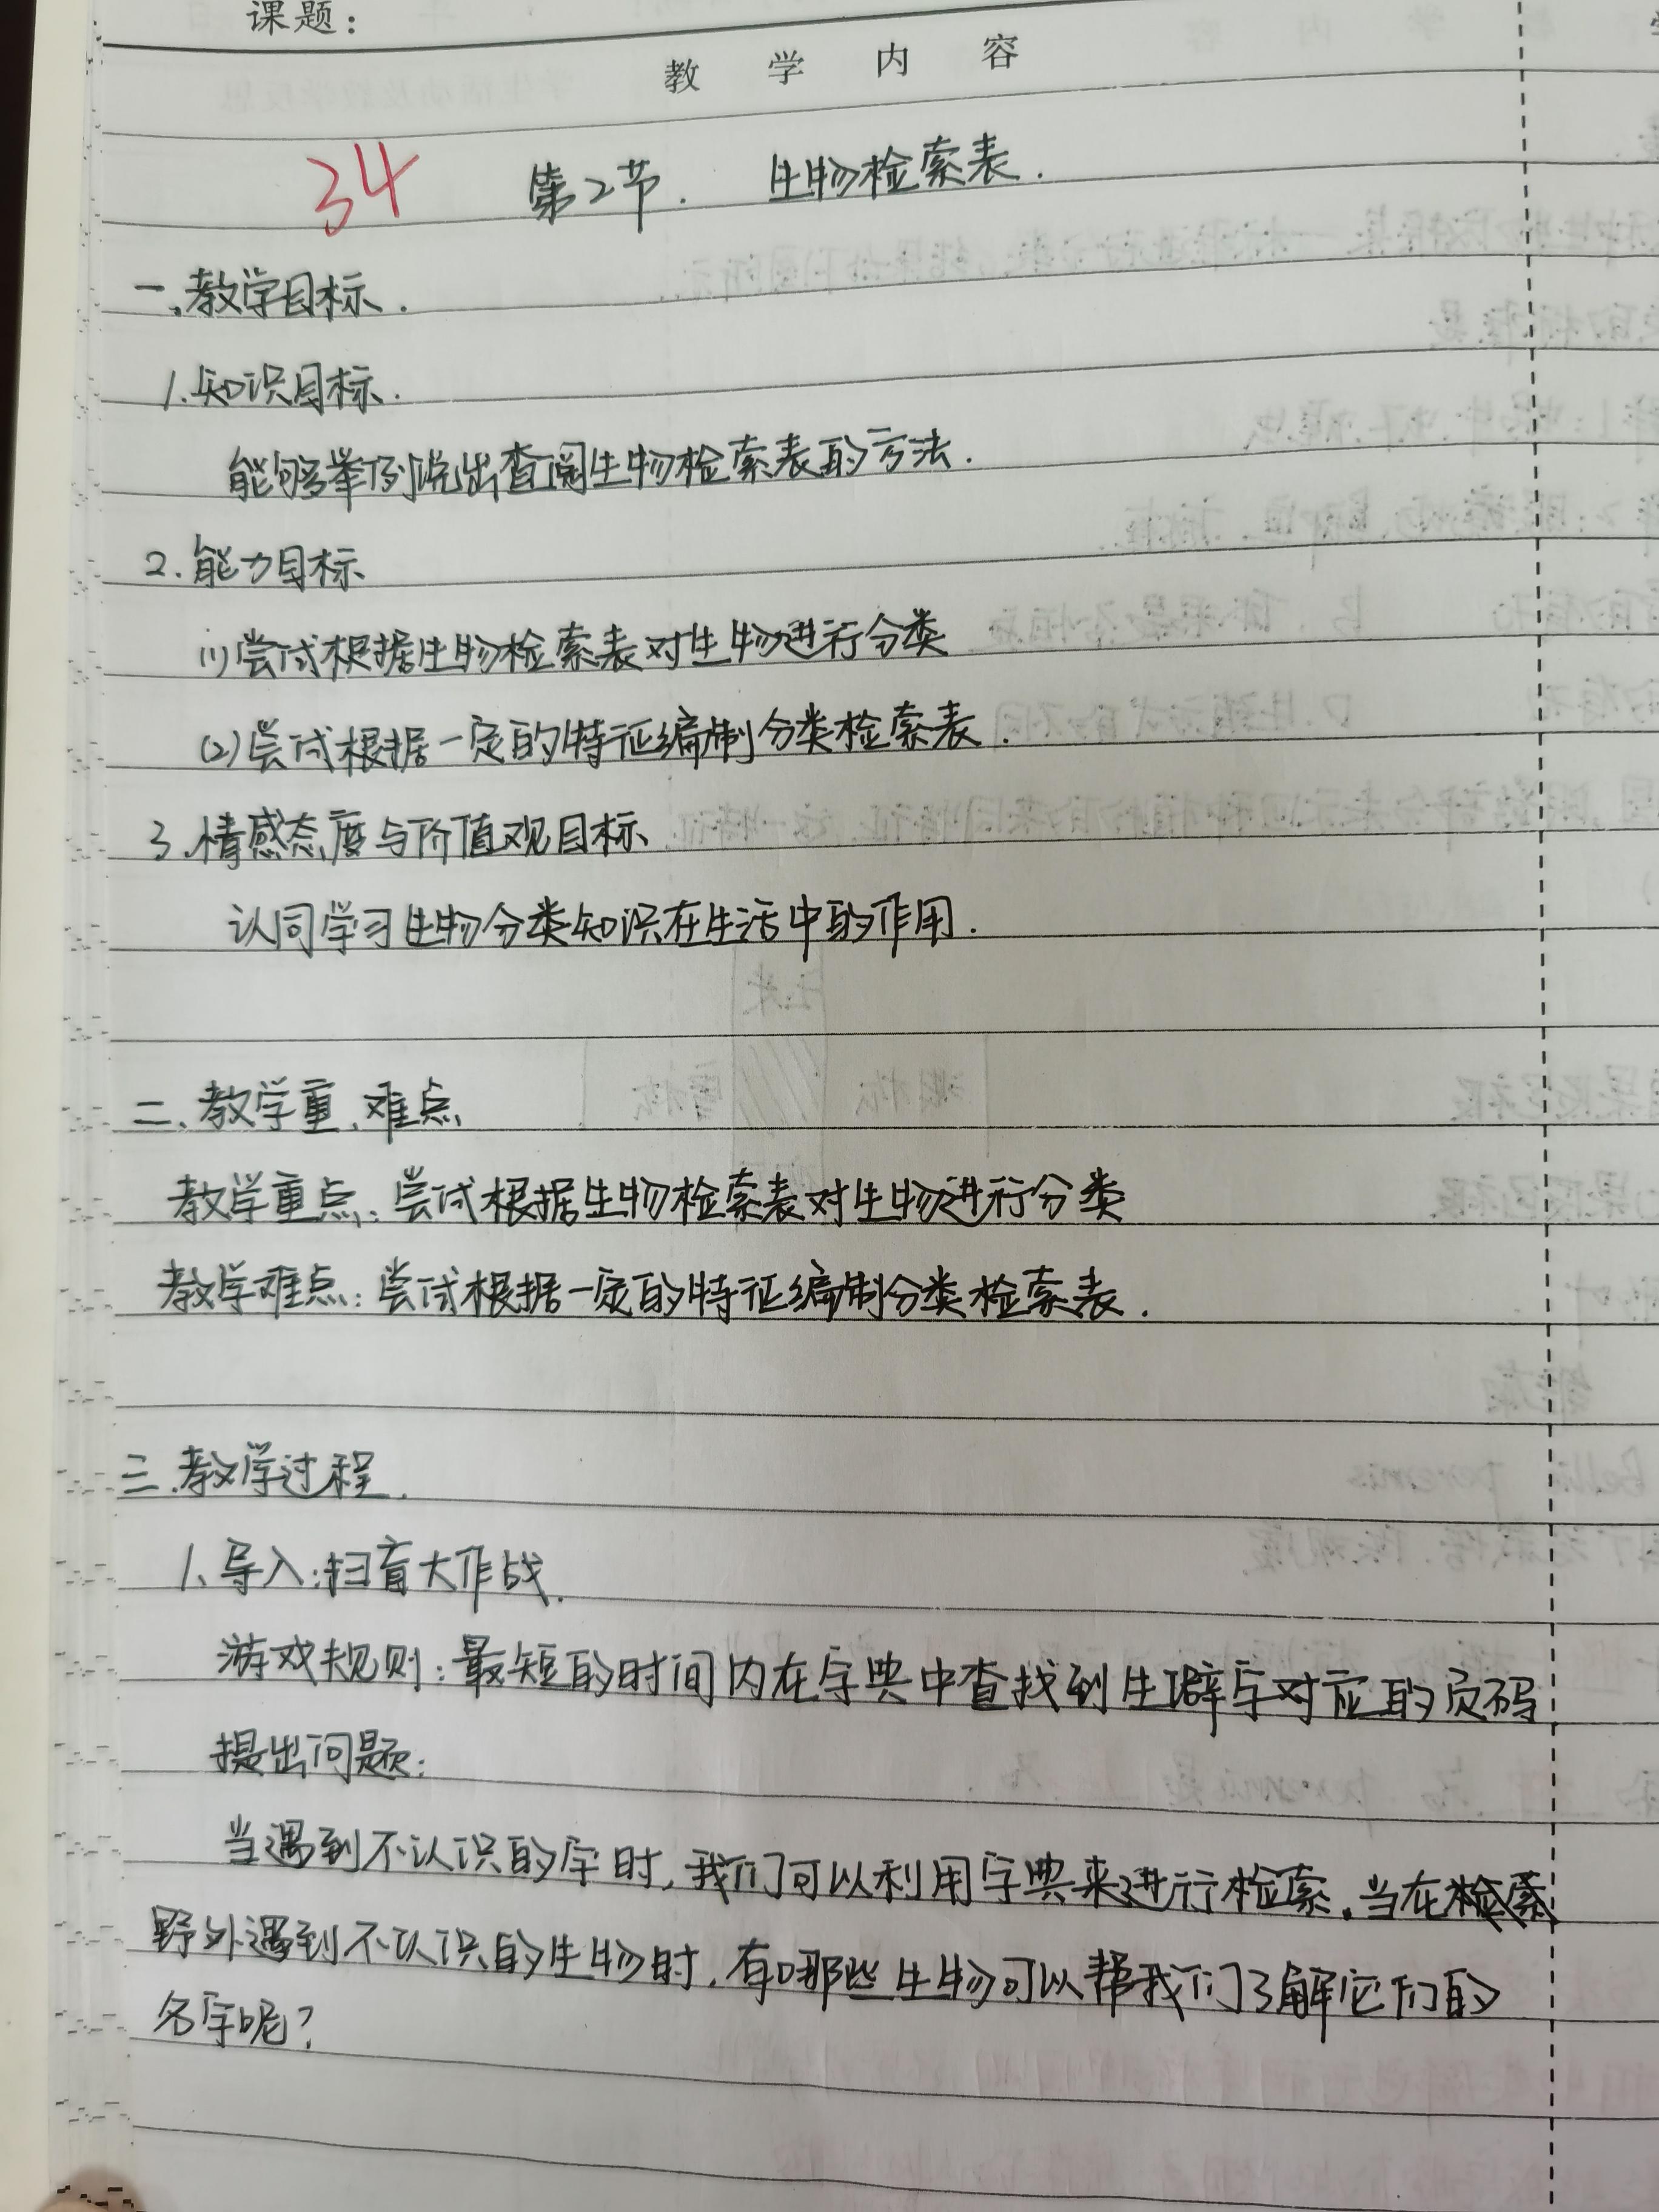 课题：
教 学 内 容
34 第2节. 生物检索表.
一.教学目标.
1.知识目标.
能够举例说出查阅生物检索表的方法.
2.能力目标
(1)尝试根据生物检索表对生物进行分类
(2)尝试根据一定的特征编制分类检索表.
3.情感态度与价值观目标
认同学习生物分类知识在生活中的作用.
二、教学重、难点
教学重点：尝试根据生物检索表对生物进行分类
教学难点：尝试根据一定的特征编制分类检索表.
三.教学过程.
1、导入：扫盲大作战.
游戏规则：最短的时间内在字典中查找到生僻字对应的页码
提出问题：
当遇到不认识的字时,我们可以利用字典来进行检索.当在
野外遇到不认识的生物时.有哪些生物可以帮我们了解它们的
名字呢?